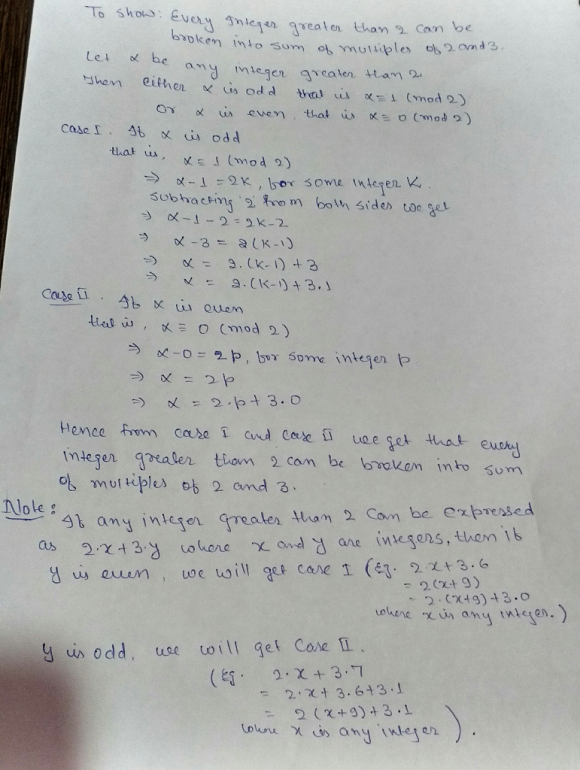 To show: Every integer greater than 2 can be
broken into sum of multiples of 2 and 3.
Let α be any integer greater than 2
Then either α is odd that is α ≡ 1 (mod 2)
or α is even that is α ≡ 0 (mod 2)
Case I. If α is odd
that is, α ≡ 1 (mod 2)
⇒ α-1 = 2K, for some integer K.
Subtracting 2 from both sides we get
⇒ α-1-2 = 2K-2
⇒ α-3 = 2(K-1)
⇒ α = 2.(K-1)+3
⇒ α = 2.(K-1)+3.1
Case II. If α is even
that is, α ≡ 0 (mod 2)
⇒ α-0 = 2p, for some integer p
⇒ α = 2p
⇒ α = 2.p + 3.0
Hence from case I and case II we get that every
integer greater than 2 can be broken into sum
of multiples of 2 and 3.
Note: If any integer greater than 2 can be expressed
as 2.x+3.y where x and y are integers, then if
y is even, we will get case I (Eg. 2.x+3.6
= 2(x+9)
= 2.(x+9)+3.0
where x is any integer.)
y is odd, we will get Case II.
(Eg. 2.x + 3.7
= 2.x + 3.6+3.1
= 2(x+9)+3.1
where x is any integer).